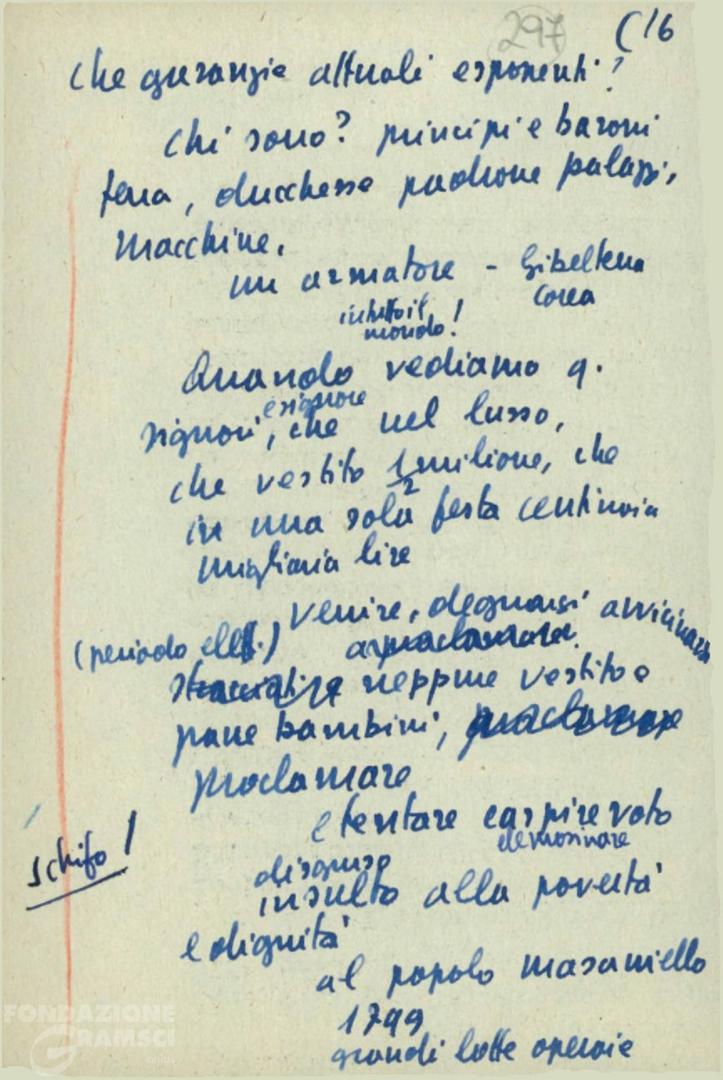 297 C16
che garanzie attuali esponenti?
chi sono? principi e baroni
terra, duchesse padrone palazzi,
macchine.
un armatore - Gibilterra
Corea
in tutto il
mondo!
Quando vediamo q.
e signore
signori, che nel lusso,
che vestito 1/2 milione, che
in una sola festa centinaia
migliaia lire
venire, degnarsi avvicinarsi
(periodo elett.) a proclamare
neppure vestito e
pane bambini, proclamare
proclamare
e tentare carpire voto
elemosinare
Schifo!
insulto alla povertà
e dignità
al popolo masaniello
1799
grandi lotte operaie
FONDAZIONE
GRAMSCI